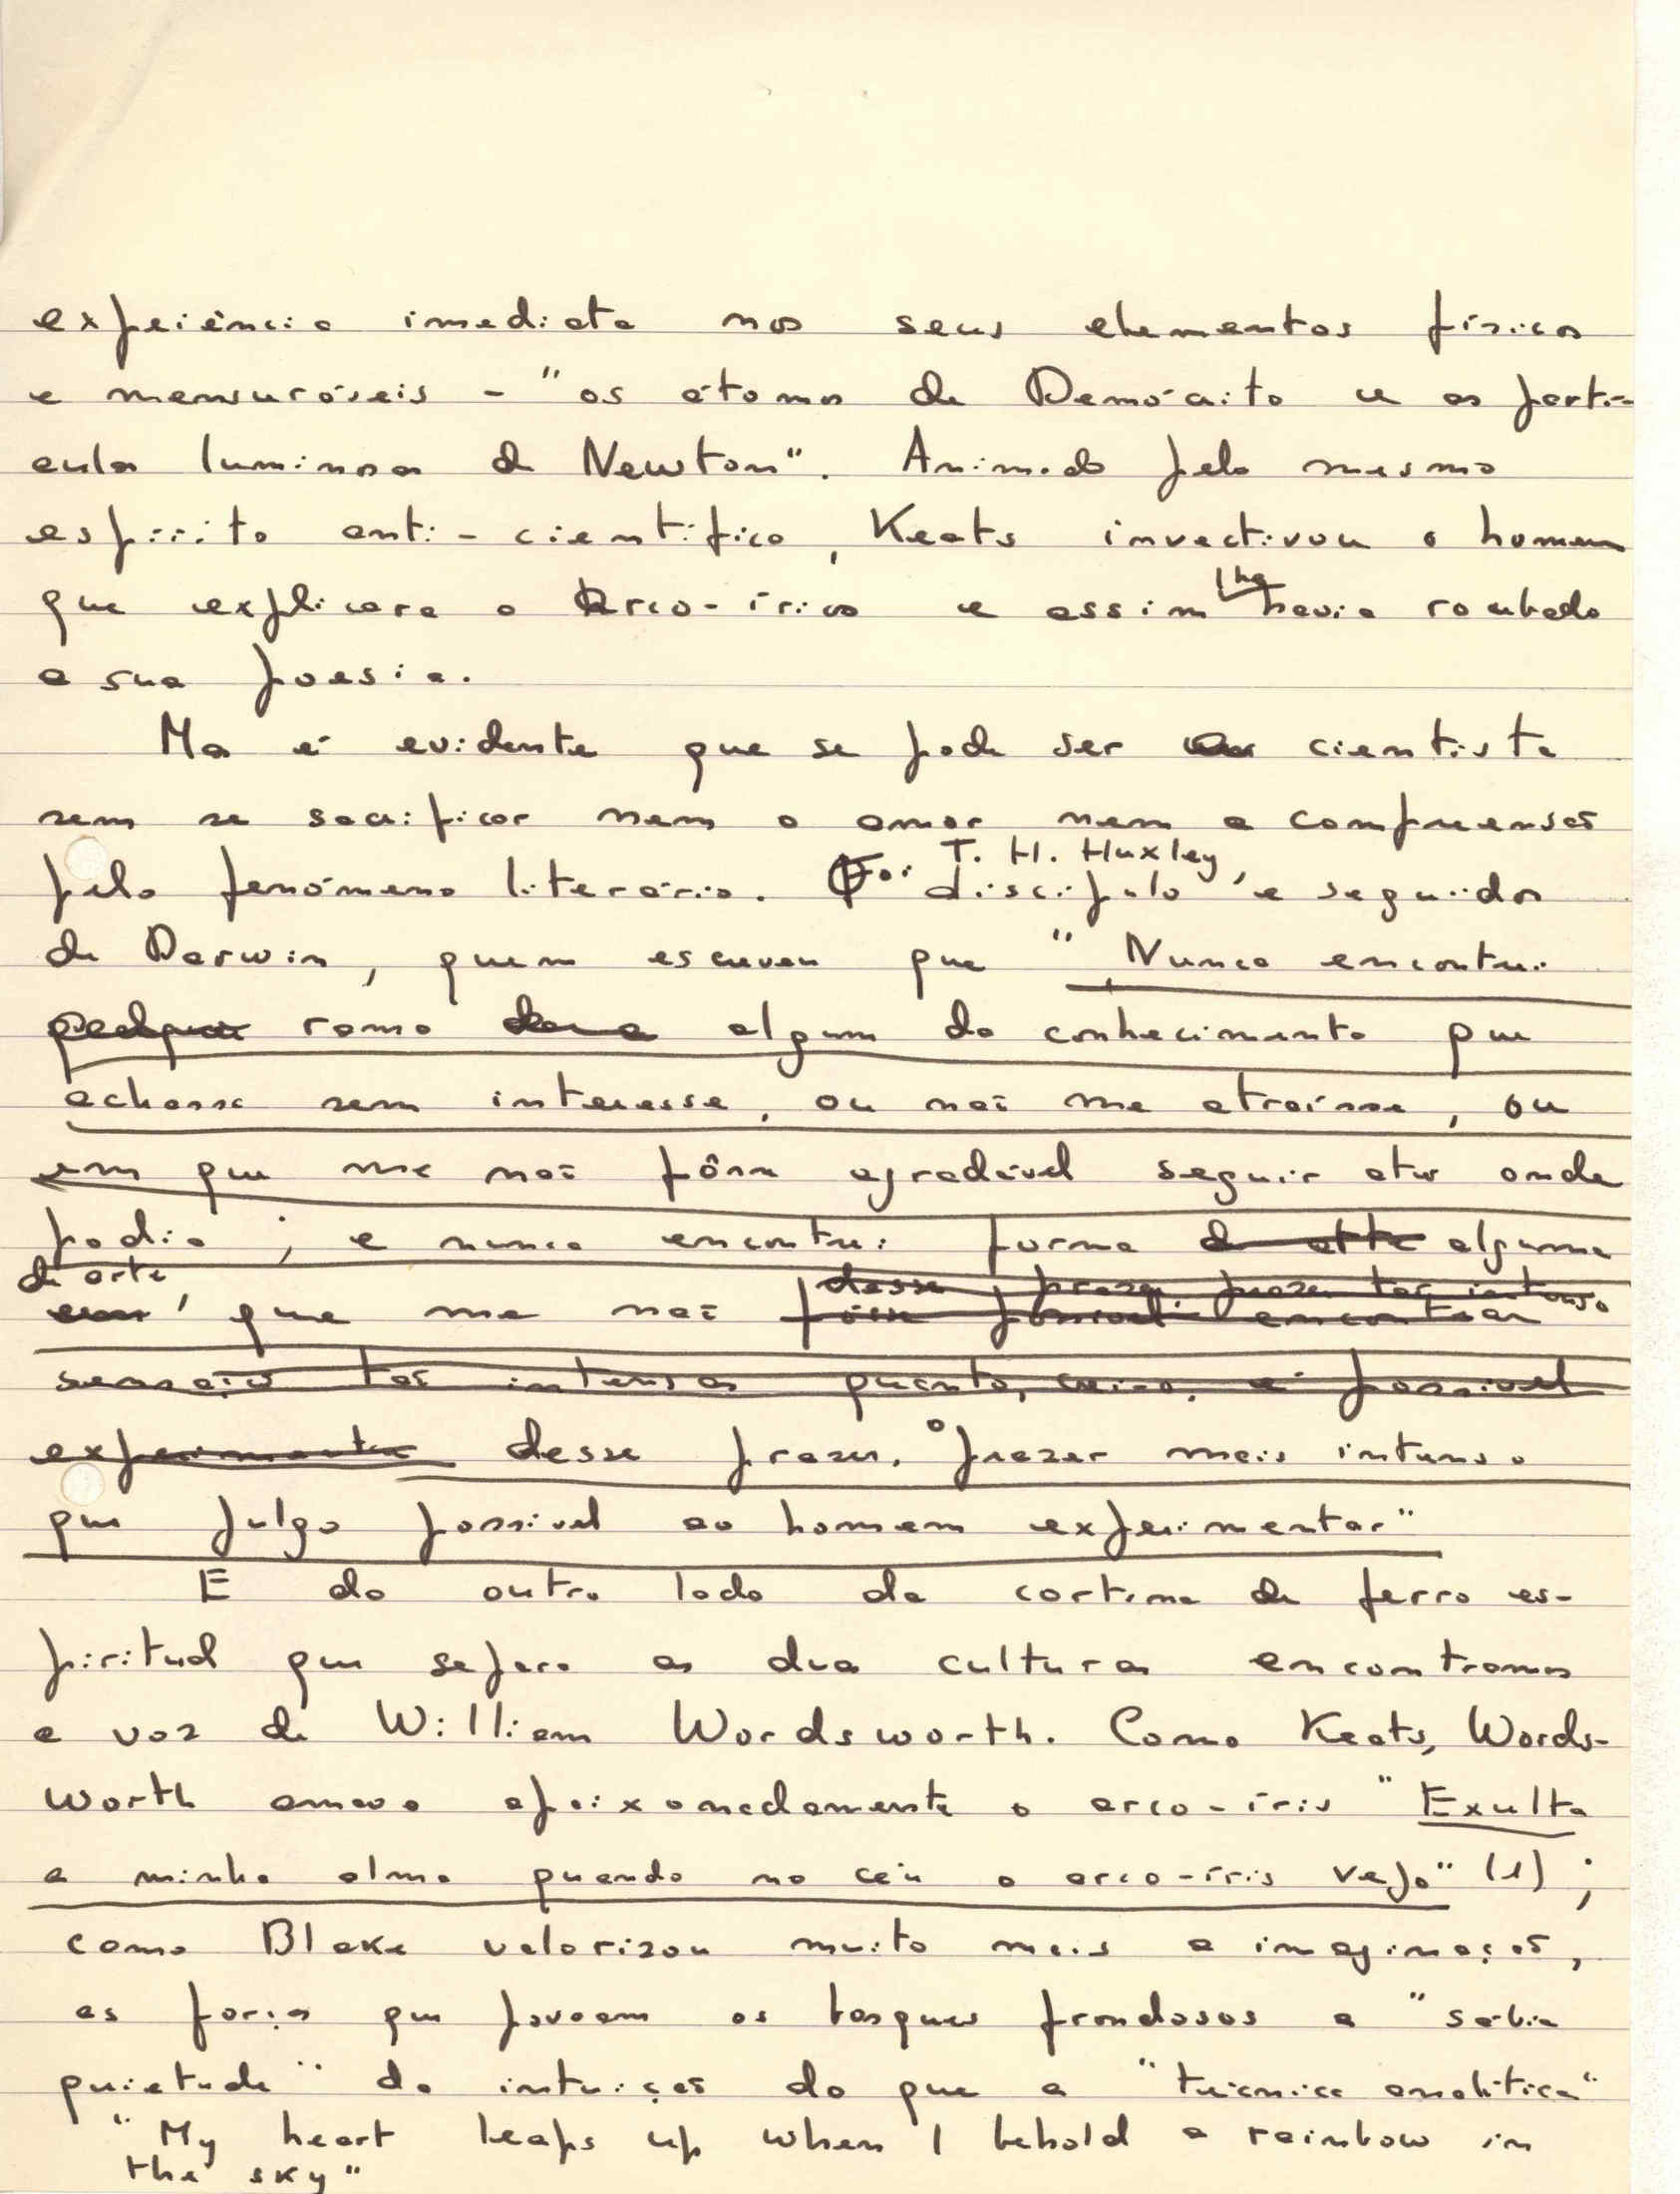 experiência imediata nos seus elementos físicos
e mensuráveis - "os átomos de Demócrito e as partí-
culas luminosas de Newton". Animado pelo mesmo
espírito anti-científico, Keats invectivou o homem
que explicara o arco-írico e assim lhe havia roubado
a sua poesia.
Mas é evidente que se pode ser cientista
sem se sacrificar nem o amor nem a compreensão
pelo fenómeno literário. Foi T. H. Huxley, discípulo e seguidor
de Darwin, quem escreveu que "Nunca encontrei
ramo algum do conhecimento que
achasse sem interesse, ou não me atraísse, ou
em que me não fôsse agradável seguir até onde
podia; e nunca encontrei forma alguma
de arte, que me não
desse prazer, o prazer mais intenso
que julgo possível ao homem experimentar"
E do outro lado da cortina de ferro es-
piritual que separa as duas culturas encontramos
a voz de William Wordsworth. Como Keats, Words-
worth amava apaixonadamente o arco-íris "Exulta
a minha alma quando no céu o arco-íris vejo" (1);
como Blake valorizou muito mais a imaginação,
as forças que povoam os bosques frondosos a "sábia
quietude" da intuição do que a "técnica analítica"
"My heart leaps up when I behold a rainbow in
the sky"